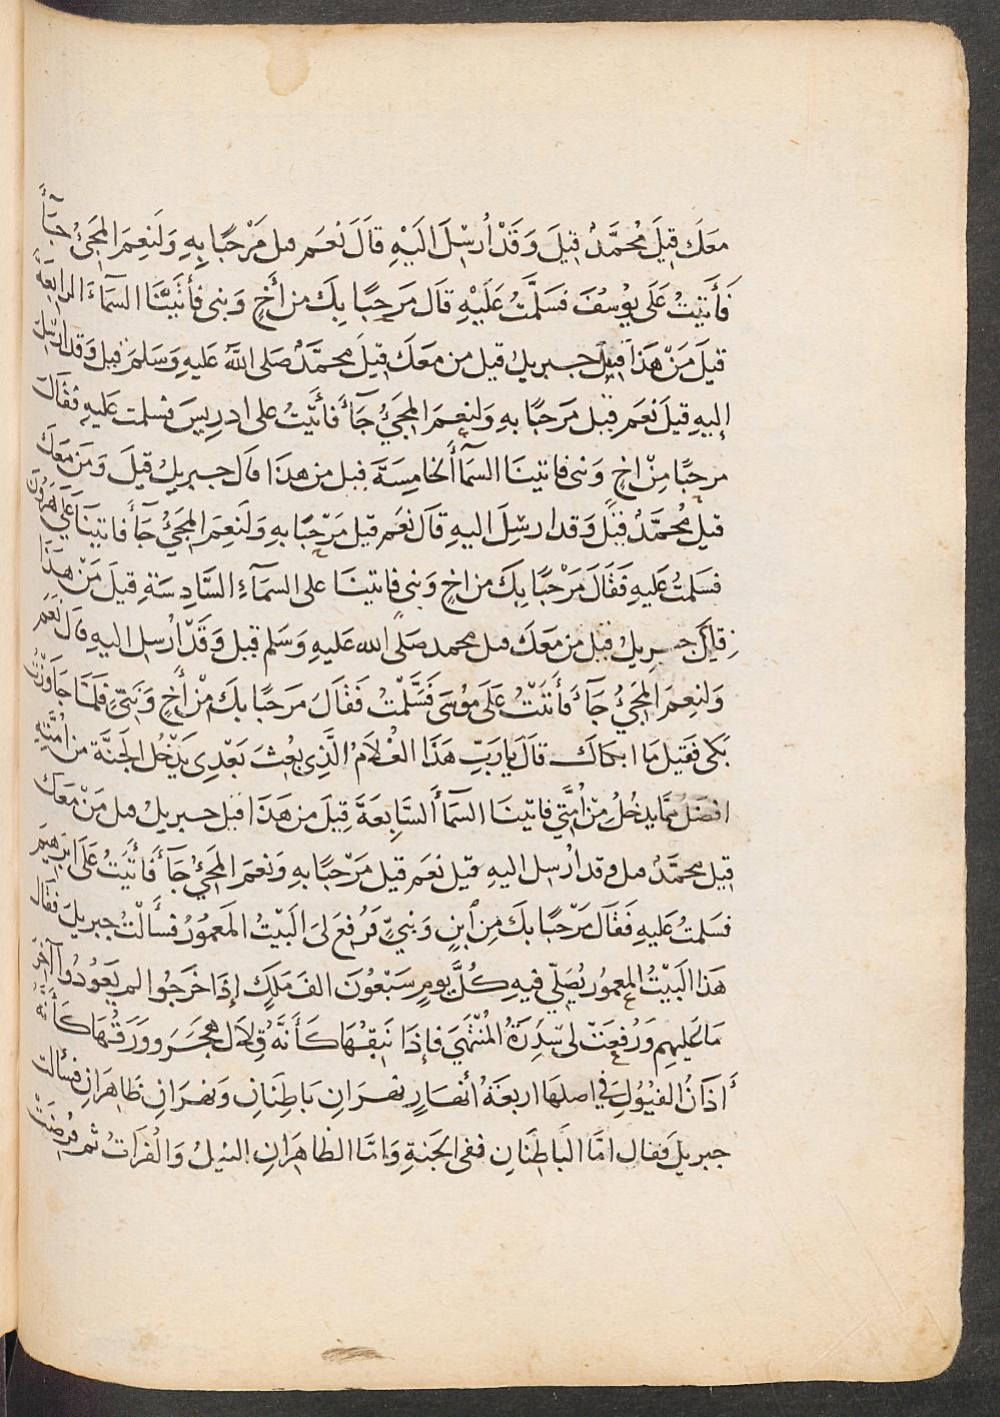 معَك قيلَ مُحمَّدٌ قيلَ وَقَدْ أُرسِلَ اليَهِ قاَلَ نَعَم قيل مَرْحَبًا بِهِ وَلَنِعمَ المَجَئُ جَآءَ
فَأَتيْتُ عَلَى يُوسُفَ فَسَلَّمتُ عَلَيْهِ قَال مَرحبًا بِكَ من أخٍ وَنبى فأَتَيْنَا السَمَآءَ الرابِعَةَ
قيلَ مَنْ هَذَا قيلَ جبريلُ قيل من معَكَ قيلَ محمَّدٌ صَلى اللهُ عَليهِ وَسَلمَ قيل وَقد ارسِلَ
إليهِ قيلَ نعَم قيل مَرحَبًا بهِ وَلَنعِمَ المَجَئُ جَآءَ فأتَيْتُ على ادرِيسَ فسلمت عَليهِ فقَالَ
مرحبًا مِنْ اخٍ وَنبى فاتينَا السَمآءَ الخامِسَةَ قيل من هذَا قال جبريلُ قيلَ وَمَن معَكَ
قيل مُحمَّدٌ قيل وَقد ارسِلَ اليهِ قاَلَ نعَم قيل مَرْحَبًا بهِ وَلَنعِمَ المَجَئُ جَآءَ فاتينَا عَلَى هَرُونَ
فسَلمتُ عَليهِ فَقَالَ مَرْحَبًا بِكَ من اخٍ وَنبى فاتينَا على السمآءِ السَّادِسَةِ قيلَ مَنْ هَذَا
قيلَ جبريلُ قيل من مَعَكَ قيل محمد صَلَى الله عَليهِ وَسَلم قيل وَقَدْ أُرسل اليهِ قال نَعَم
وَلَنعِمَ المَجَئُ جَآءَ فَأَتَيْتُ عَلَى مُوسَى فَسَلَّمْتُ فَقَالَ مَرحَبًا بكَ مِنْ أَخٍ وَنَبِيٍّ فَلمَّا جَاوَزْتُ
بَكَى فَقيلَ مَا ابكاكَ قالَ يَا رَبِّ هَذَا الغُلاَمُ الَّذِي بُعِثَ بَعْدِى يَدْخُل الجَنَّةَ من اُمَّتِهِ
افضَلُ مِمَّا يدخُلُ مِنْ اُمَّتِي فاتينَا السَمآءَ السَّابِعَةَ قِيلَ من هَذَا قيل جبريلُ قيل مَنْ مَعَكَ
قيل محمَّدٌ قيل وقد أُرسل اليهِ قيل نعَم قيل مَرْحَبًا بهِ وَنعمَ المَجَئُ جَآءَ فأَتيَتُ عَلَى ابرهيمَ
فسَلمتُ عليهِ فَقَالَ مَرْحَبًا بكَ مِنِ ابنٍ وَنبيٍّ فَرُفعَ لىَ البَيْتُ المَعمُورُ فسَألْتُ جبريلَ فقَالَ
هَذا البَيْتُ المعمُورُ يُصَلّي فيهِ كُلَّ يومٍ سَبْعُونَ الفَ مَلَكٍ إذَا خَرَجُوا لم يَعُودُوا آخِرَ
مَا عَليهِم وَرُفِعَتْ لى سِدْرَةُ المُنْتَهَى فإذَا نَبِقُهَا كَأَنَّهُ قِلاَل هَجَرَ وَوَرَقُهَا كَأَنَّهُ
أذَانُ الفيُوُلِ فى اصلها اربعَةُ أنهَارٍ نهرَانِ بَاطِنَانِ وَنهرَانِ ظاهِرَانِ فسألت
جبريلَ فقال امَّا البَاطِنَانِ ففى الجَنةِ وَامَّا الظَاهِرَانِ النيلُ وَالفُرَاتُ ثم فُرِضَتْ